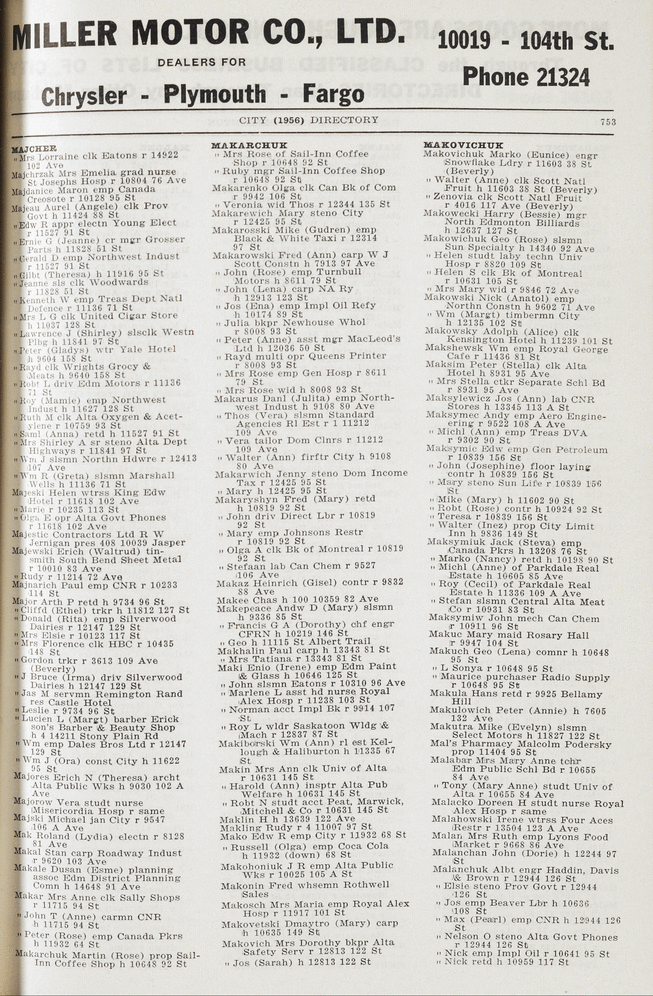 MILLER MOTOR CO., LTD.
DEALERS FOR
Chrysler - Plymouth - Fargo
10019 - 104th St.
Phone 21324
CITY (1956) DIRECTORY
753
MAJCHER
" Mrs Lorraine clk Eatons r 14922
102 Ave
Majchrzak Mrs Emelia grad nurse
St Josephs Hosp r 10804 76 Ave
Majdanice Maron emp Canada
Creosote r 10128 95 St
Majeau Aurel (Angele) clk Prov
Govt h 11424 88 St
" Edw R appr electn Young Elect
r 11527 91 St
" Ernie G (Jeanne) cr mgr Grosser
Parts h 11828 51 St
" Gerald D emp Northwest Indust
r 11527 91 St
" Gilbt (Theresa) h 11916 95 St
" Jeanne sls clk Woodwards
r 11828 51 St
" Kenneth W emp Treas Dept Natl
Defence r 11136 71 St
" Mrs L G clk United Cigar Store
h 11037 128 St
" Lawrence J (Shirley) slsclk Westn
Plbg h 11841 97 St
" Peter (Gladys) wtr Yale Hotel
h 9604 158 St
" Rayd clk Wrights Grocy &
Meats h 9640 158 St
" Robt L driv Edm Motors r 11136
71 St
" Roy (Mamie) emp Northwest
Indust h 11627 128 St
" Ruth M clk Alta Oxygen & Acet-
ylene r 10759 93 St
" Saml (Anna) retd h 11527 91 St
" Mrs Shirley A sr steno Alta Dept
Highways r 11841 97 St
" Wm J slsmn Northn Hdwre r 12413
107 Ave
" Wm R (Greta) slsmn Marshall
Wells h 11136 71 St
Majeski Helen wtrss King Edw
Hotel r 11618 102 Ave
" Marie r 10235 113 St
" Olga E opr Alta Govt Phones
r 11618 102 Ave
Majestic Contractors Ltd R W
Jernigan pres 408 10039 Jasper
Majewski Erich (Waltrud) tin-
smith South Bend Sheet Metal
r 10010 83 Ave
" Rudy r 11214 72 Ave
Majnarich Paul emp CNR r 10233
114 St
Major Arth P retd h 9734 96 St
" Cliffd (Ethel) trkr h 11812 127 St
" Donald (Rita) emp Silverwood
Dairies r 12147 129 St
" Mrs Elsie r 10123 117 St
" Mrs Florence clk HBC r 10435
148 St
" Gordon trkr r 3613 109 Ave
(Beverly)
" J Bruce (Irma) driv Silverwood
Dairies h 12147 129 St
" Jas M servmn Remington Rand
res Castle Hotel
" Leslie r 9734 96 St
" Lucien L (Margt) barber Erick
son's Barber & Beauty Shop
h 4 14211 Stony Plain Rd
" Wm emp Dales Bros Ltd r 12147
129 St
" Wm J (Ora) const City h 11622
95 St
Majores Erich N (Theresa) archt
Alta Public Wks h 9030 102 A
Ave
Majorow Vera studt nurse
Misericordia Hosp r same
Majski Michael jan City r 9547
106 A Ave
Mak Roland (Lydia) electn r 8128
81 Ave
Makal Stan carp Roadway Indust
r 9620 103 Ave
Makale Dusan (Esme) planning
assoc Edm District Planning
Comn h 14648 91 Ave
Makar Mrs Anne clk Sally Shops
r 11715 94 St
" John T (Anne) carmn CNR
h 11715 94 St
" Peter (Rose) emp Canada Pkrs
h 11932 64 St
Makarchuk Martin (Rose) prop Sail-
Inn Coffee Shop h 10648 92 St
MAKARCHUK
" Mrs Rose of Sail-Inn Coffee
Shop r 10648 92 St
" Ruby mgr Sail-Inn Coffee Shop
r 10648 92 St
Makarenko Olga clk Can Bk of Com
r 9942 106 St
" Veronia wid Thos r 12344 135 St
Makarewich Mary steno City
r 12425 95 St
Makarosski Mike (Gudren) emp
Black & White Taxi r 12314
97 St
Makarowski Fred (Ann) carp W J
Scott Constn h 7913 97 Ave
" John (Rose) emp Turnbull
Motors h 8611 79 St
" John (Lena) carp NA Ry
h 12913 123 St
" Jos (Ena) emp Impl Oil Refy
h 10174 89 St
" Julia bkpr Newhouse Whol
r 8008 93 St
" Peter (Anne) asst mgr MacLeod's
Ltd h 12036 50 St
" Rayd multi opr Queens Printer
r 8008 93 St
" Mrs Rose emp Gen Hosp r 8611
79 St
" Mrs Rose wid h 8008 93 St
Makarus Danl (Julita) emp North-
west Indust h 9108 80 Ave
" Thos (Vera) slsmn Standard
Agencies Rl Est r 1 11212
109 Ave
" Vera tailor Dom Clnrs r 11212
109 Ave
" Walter (Ann) firftr City h 9108
80 Ave
Makarwich Jenny steno Dom Income
Tax r 12425 95 St
" Mary h 12425 95 St
Makaryshyn Fred (Mary) retd
h 10819 92 St
" John driv Direct Lbr r 10819
92 St
" Mary emp Johnsons Restr
r 10819 92 St
" Olga A clk Bk of Montreal r 10819
92 St
" Stefaan lab Can Chem r 9527
106 Ave
Makaz Heinrich (Gisel) contr r 9832
88 Ave
Makee Chas h 100 10359 82 Ave
Makepeace Andw D (Mary) slsmn
h 9336 85 St
" Francis G A (Dorothy) chf engr
CFRN h 10219 146 St
" Geo h 11115 St Albert Trail
Makhalin Paul carp h 13343 81 St
" Mrs Tatiana r 13343 81 St
Maki Enio (Irene) emp Edm Paint
& Glass h 10646 125 St
" John slsmn Eatons r 10310 96 Ave
" Marlene L asst hd nurse Royal
Alex Hosp r 11238 103 St
" Norman acct Impl Bk r 9914 107
St
" Roy L wldr Saskatoon Wldg &
Mach r 12837 87 St
Makiborski Wm (Ann) rl est Kel-
lough & Haliburton h 11335 67
St
Makin Mrs Ann clk Univ of Alta
r 10631 145 St
" Harold (Ann) insptr Alta Pub
Welfare h 10631 145 St
" Robt N studt acct Peat, Marwick,
Mitchell & Co r 10631 145 St
Maklin H h 13639 122 Ave
Makling Rudy r 4 11007 97 St
Mako Edw R emp City r 11932 68 St
" Russell (Olga) emp Coca Cola
h 11932 (down) 68 St
Makohoniuk J R emp Alta Public
Wks r 10025 105 A St
Makonin Fred whsemn Rothwell
Sales
Makosch Mrs Maria emp Royal Alex
Hosp r 11917 101 St
Makovetski Dmaytro (Mary) carp
h 10635 149 St
Makovich Mrs Dorothy bkpr Alta
Safety Serv r 12813 122 St
" Jos (Sarah) h 12813 122 St
MAKOVICHUK
Makovichuk Marko (Eunice) engr
Snowflake Ldry r 11603 38 St
(Beverly)
" Walter (Anne) clk Scott Natl
Fruit h 11603 38 St (Beverly)
" Zenovia clk Scott Natl Fruit
r 4016 117 Ave (Beverly)
Makowecki Harry (Bessie) mgr
North Edmonton Billiards
h 12637 127 St
Makowichuk Geo (Rose) slsmn
Sun Specialty h 14340 92 Ave
" Helen studt laby techn Univ
Hosp r 8820 109 St
" Helen S clk Bk of Montreal
r 10631 105 St
" Mrs Mary wid r 9846 72 Ave
Makowski Nick (Anatol) emp
Northn Constn h 9602 71 Ave
" Wm (Margt) timbermn City
h 12135 102 St
Makowsky Adolph (Alice) clk
Kensington Hotel h 11239 101 St
Makshewsk Wm emp Royal George
Cafe r 11436 81 St
Maksim Peter (Stella) clk Alta
Hotel h 8931 95 Ave
" Mrs Stella ctkr Separate Schl Bd
r 8931 95 Ave
Maksylewicz Jos (Ann) lab CNR
Stores h 13345 113 A St
Maksymec Andy emp Aero Engine-
ering r 9522 108 A Ave
" Michl (Ann) emp Treas DVA
r 9302 90 St
Maksymic Edw emp Gen Petroleum
r 10839 156 St
" John (Josephine) floor laying
contr h 10839 156 St
" Mary steno Sun Life r 10839 156
St
" Mike (Mary) h 11602 90 St
" Robt (Rose) contr h 10924 92 St
" Teresa r 10839 156 St
" Walter (Inez) prop City Limit
Inn h 9836 149 St
Maksymiuk Jack (Steva) emp
Canada Pkrs h 13208 76 St
" Marko (Nancy) retd h 10198 90 St
" Michl (Anne) of Parkdale Real
Estate h 10605 85 Ave
" Roy (Cecil) of Parkdale Real
Estate h 11336 109 A Ave
" Stefan slsmn Central Alta Meat
Co r 10931 83 St
Maksymiw John mech Can Chem
r 10911 96 St
Makuc Mary maid Rosary Hall
r 9947 104 St
Makuch Geo (Lena) comnr h 10648
95 St
" L Sonya r 10648 95 St
" Maurice purchaser Radio Supply
r 10648 95 St
Makula Hans retd r 9925 Bellamy
Hill
Makulowich Peter (Annie) h 7605
132 Ave
Makutra Mike (Evelyn) slsmn
Select Motors h 11827 122 St
Mal's Pharmacy Malcolm Podersky
prop 11404 95 St
Malabar Mrs Mary Anne tchr
Edm Public Schl Bd r 10655
84 Ave
" Tony (Mary Anne) studt Univ of
Alta r 10655 84 Ave
Malacko Doreen H studt nurse Royal
Alex Hosp r same
Malahowski Irene wtrss Four Aces
Restr r 13504 123 A Ave
Malan Mrs Ruth emp Lyons Food
Market r 9668 86 Ave
Malanchan John (Dorie) h 12244 97
St
Malanchuk Albt engr Haddin, Davis
& Brown r 12944 126 St
" Elsie steno Prov Govt r 12944
126 St
" Jos emp Beaver Lbr h 10636
108 St
" Max (Pearl) emp CNR h 12944 126
St
" Nelson O steno Alta Govt Phones
r 12944 126 St
" Nick emp Impl Oil r 10641 95 St
" Nick retd h 10959 117 St